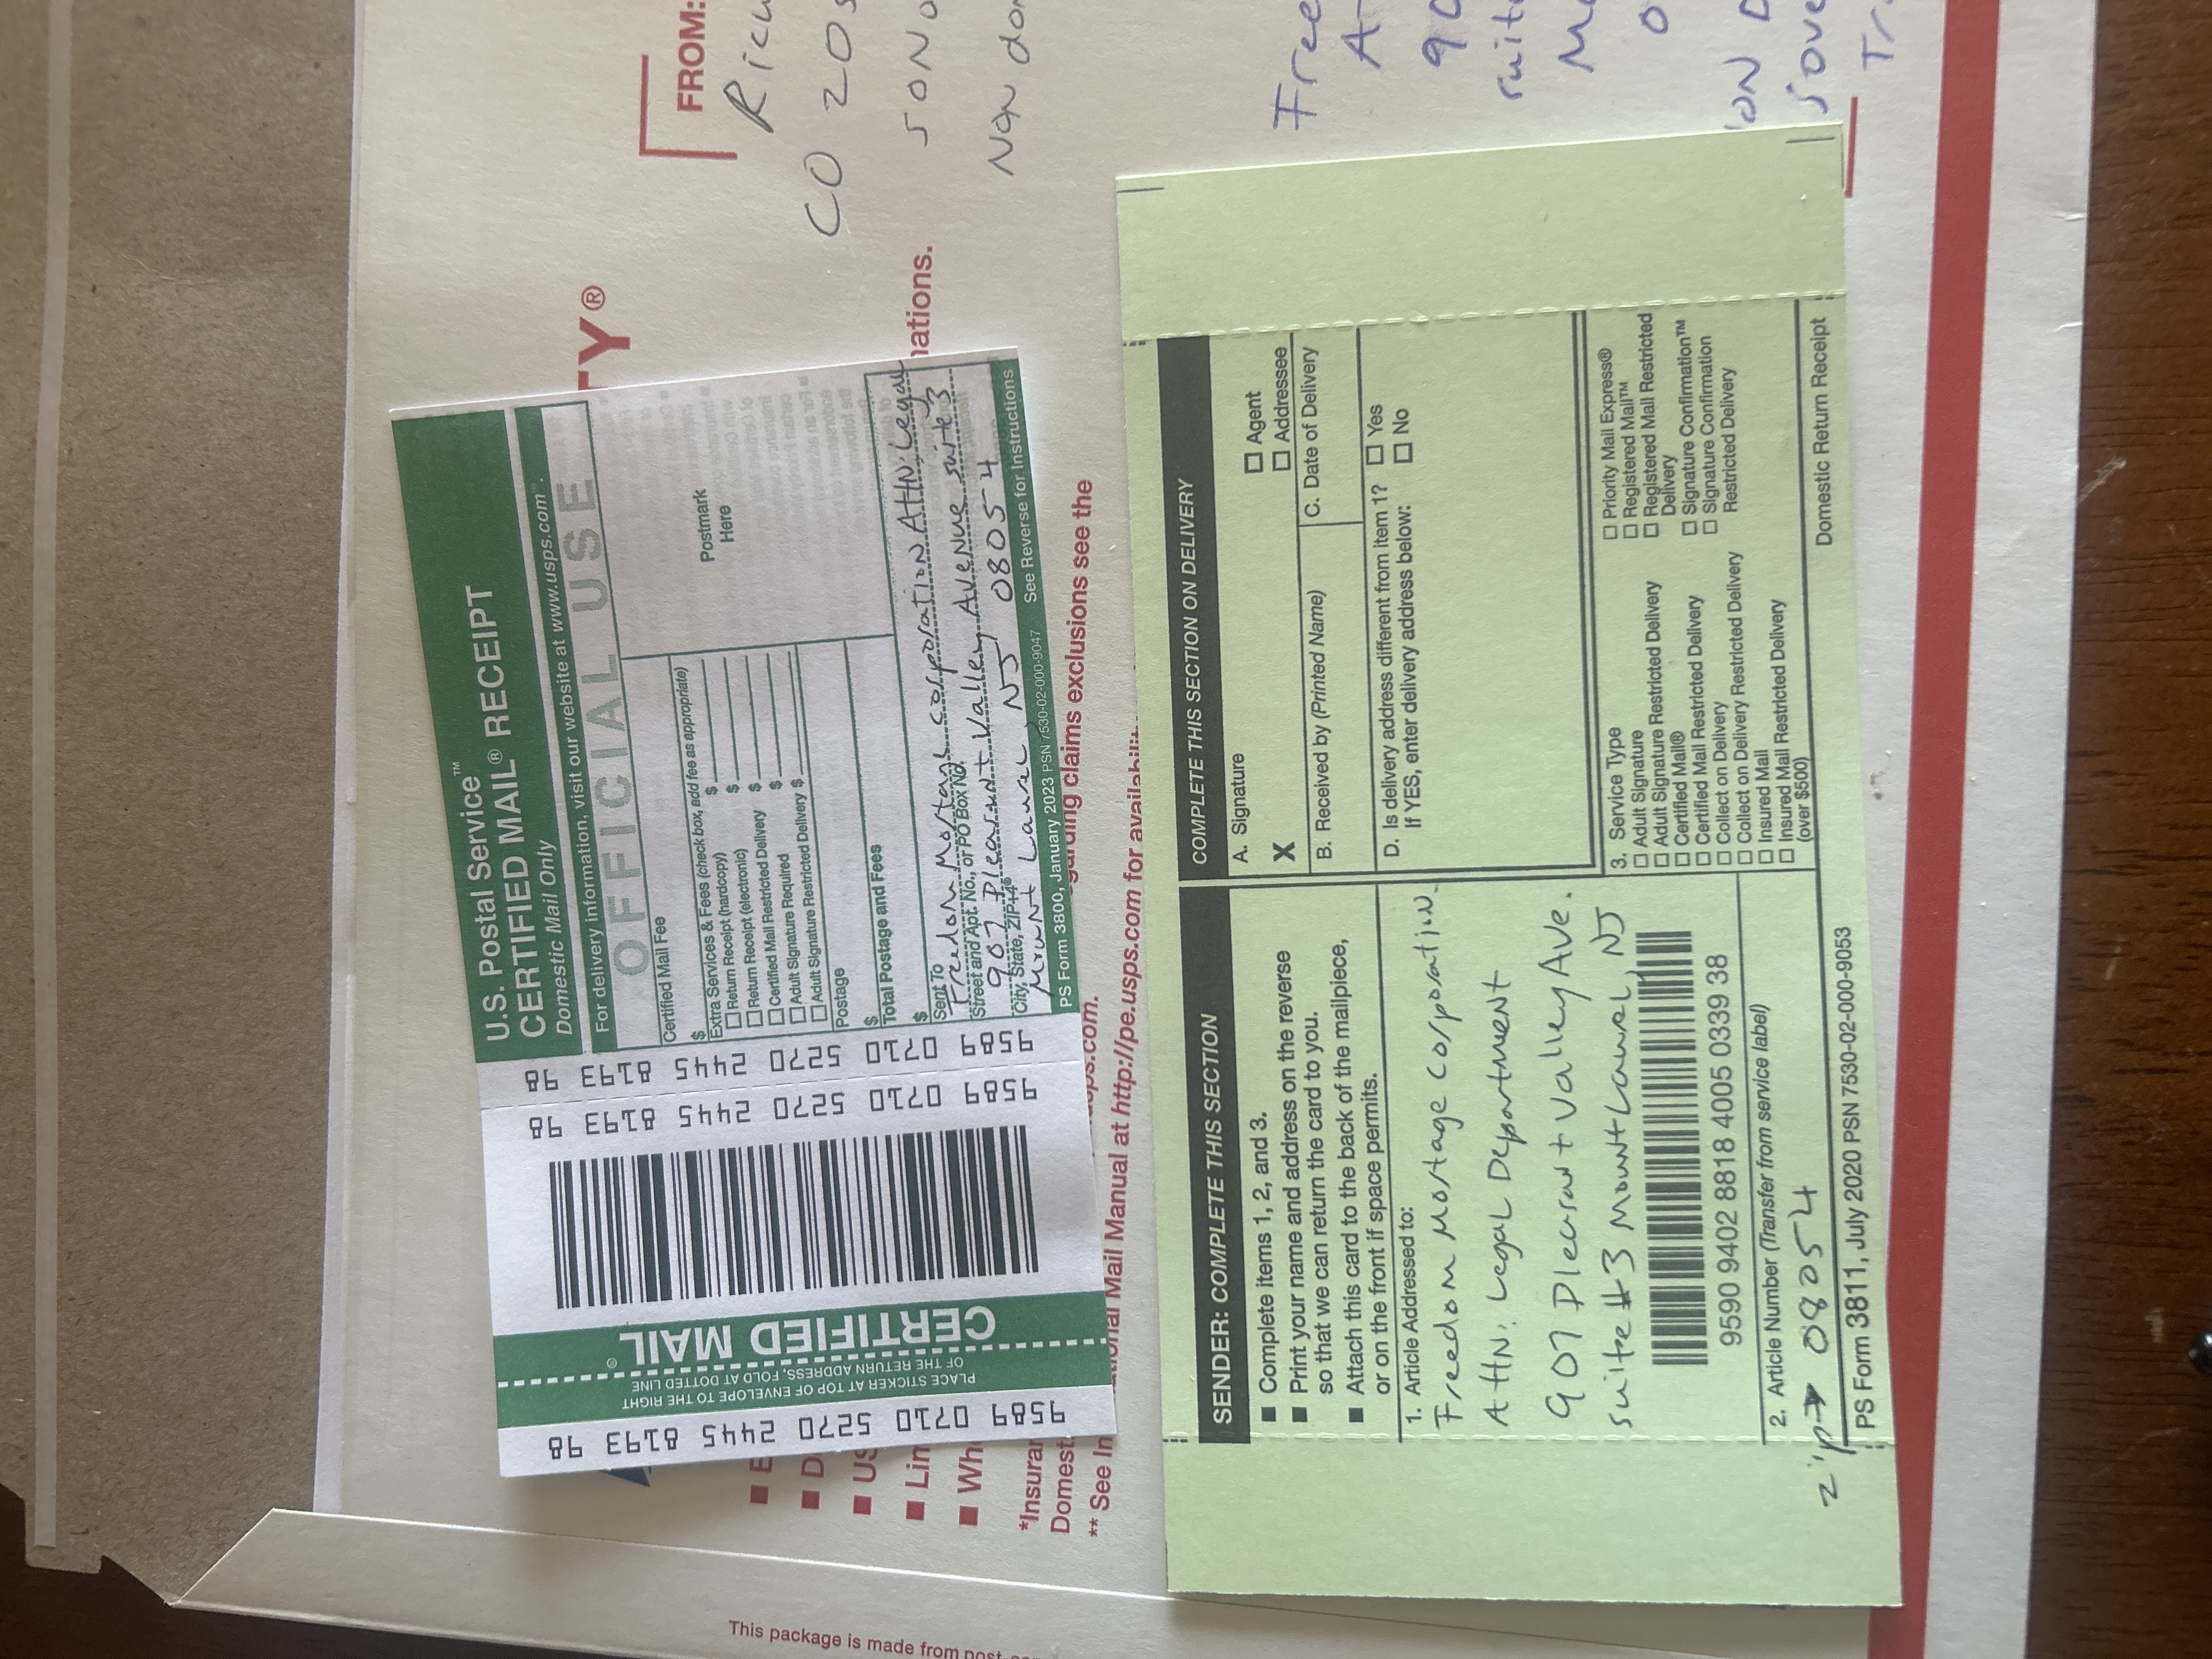 This package is made from post-
9589 0710 5270 2445 8193 98
PLACE STICKER AT TOP OF ENVELOPE TO THE RIGHT
OF THE RETURN ADDRESS, FOLD AT DOTTED LINE
CERTIFIED MAIL®
9589 0710 5270 2445 8193 98
9589 0710 5270 2445 8193 98
U.S. Postal Service™
CERTIFIED MAIL® RECEIPT
Domestic Mail Only
For delivery information, visit our website at www.usps.com®.
OFFICIAL USE
Certified Mail Fee
$
Extra Services & Fees (check box, add fee as appropriate)
Return Receipt (hardcopy) $
Return Receipt (electronic) $
Certified Mail Restricted Delivery $
Adult Signature Required $
Adult Signature Restricted Delivery $
Postage
$
Total Postage and Fees
$
Postmark
Here
Sent To
Freedom Mortage Corporation Attn: Legal
Street and Apt. No., or PO Box No.
907 Pleasant Valley Avenue suite 3
City, State, ZIP+4®
Mount Laurel, NJ 08054
PS Form 3800, January 2023 PSN 7530-02-000-9047 See Reverse for Instructions
TY®
FROM:
CO 20
SONO
NON do
E
D
US
Lin
nations.
Wh
*Insura
Domest
usps.com.
garding claims exclusions see the
** See In
ional Mail Manual at http://pe.usps.com for availabili
SENDER: COMPLETE THIS SECTION
Complete items 1, 2, and 3.
Print your name and address on the reverse
so that we can return the card to you.
Attach this card to the back of the mailpiece,
or on the front if space permits.
1. Article Addressed to:
Freedom Mortage Corporation
Attn: Legal Department
907 Pleasant Valley Ave.
suite #3 Mount Laurel, NJ
9590 9402 8818 4005 0339 38
2. Article Number (Transfer from service label)
zip → 08054
PS Form 3811, July 2020 PSN 7530-02-000-9053
COMPLETE THIS SECTION ON DELIVERY
A. Signature
X
Agent
Addressee
B. Received by (Printed Name)
C. Date of Delivery
D. Is delivery address different from item 1? Yes
If YES, enter delivery address below: No
3. Service Type
Adult Signature
Adult Signature Restricted Delivery
Certified Mail®
Certified Mail Restricted Delivery
Collect on Delivery
Collect on Delivery Restricted Delivery
Insured Mail
Insured Mail Restricted Delivery
(over $500)
Priority Mail Express®
Registered Mail™
Registered Mail Restricted
Delivery
Signature Confirmation™
Signature Confirmation
Restricted Delivery
Domestic Return Receipt
Free
A
90
suit
M
0
ON D
sove
Tr